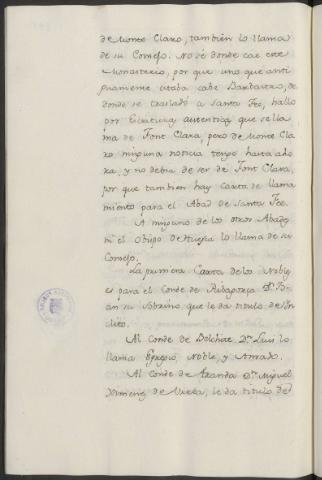 de Monte Claro, tambien lo llama
de su Consejo. No sé donde cae este
Monasterio, por que uno que anti
guamente estaba cabe Barbastro, de
donde se trasladó a Santa Fee, hallo
por Escritura autentica que se lla
ma de Font Clara, pero de Monte Cla
ro ninguna noticia tengo hasta aho
ra, y no debia de ser de Font Clara,
por que tambien hay carta de llama
miento para el Abad de Santa Fee.
A ninguno de los otros Abades
ni el Obispo de Huesca lo llama de su
Consejo.
La primera Carta de los Nobles
es para el Conde de Ribagorza Dn. Ju
an su Sobrino, que le da titulo de Yn
clito.
Al Conde de Belchite Dn. Luis lo
llama Egregio, Noble, y Amado.
Al Conde de Aranda Dn. Miguel
Ximenez de Urrea, le da titulo de